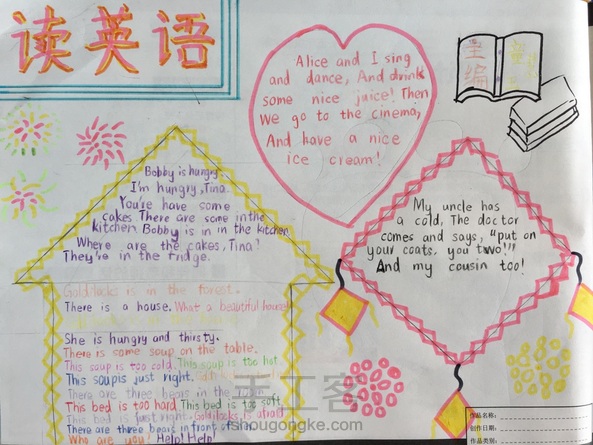 读英语
Alice and I sing
and dance, And drink
some nice juice! Then
We go to the cinema,
And have a nice
ice cream!
Bobby is hungry.
I'm hungry, Tina.
You're have some
cakes There are some in the
kitchen Bobby is in in the kitchen
Where are the cakes, Tina?
They're in the fridge.
My uncle has
a cold, The doctor
comes and says, "put on
your coats, you two!"
And my cousin too!
Goldilocks is in the forest.
There is a house. What a beautiful house!
She is hungry and thirsty.
There is some soup on the table.
This soup is too cold. This soup is too hot.
This soup is just right.
There are three beds in the room
This bed is too hard This bed is too soft
This bed is just right. Goldilocks is afraid
There are three bears in front of her.
Who are you? Help! Help!
手工客
shougongke.com
作品名称:
创作日期:
作品类别: